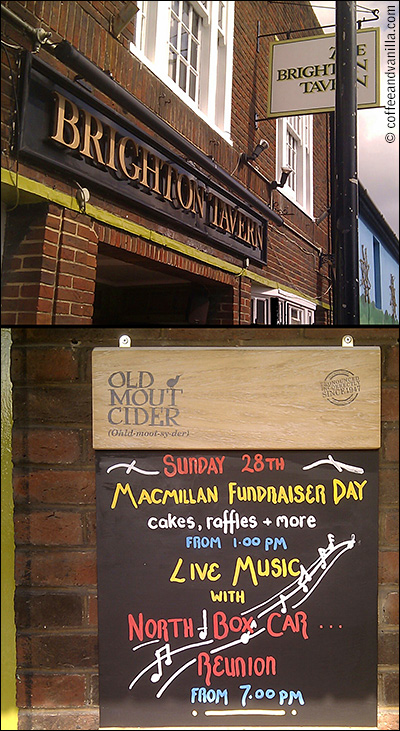 © coffeeandvanilla.com
THE
BRIGHTON
TAVERN
BRIGHTON TAVERN
OLD
MOUT
CIDER
(Ohld-moot-sy-der)
PRONOUNCED
INCORRECTLY
SINCE 1947
SUNDAY 28TH
MACMILLAN FUNDRAISER DAY
cakes, raffles + more
FROM 1.00 PM
LIVE MUSIC
WITH
NORTH BOX CAR ...
REUNION
FROM 7.00 PM